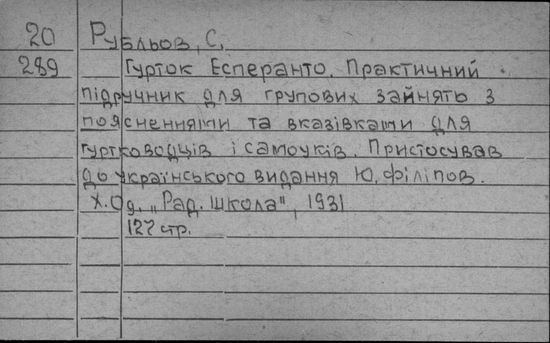 20 Рубльов, С.
289 Гурток Есперанто. Практичний
підручник для групових зайнять з
поясненнями та вказівками для
гуртководців і самоуків. Пристосував
до українського видання Ю. Філіпов.
Х. Од. „Рад. школа", 1931
127 стр.